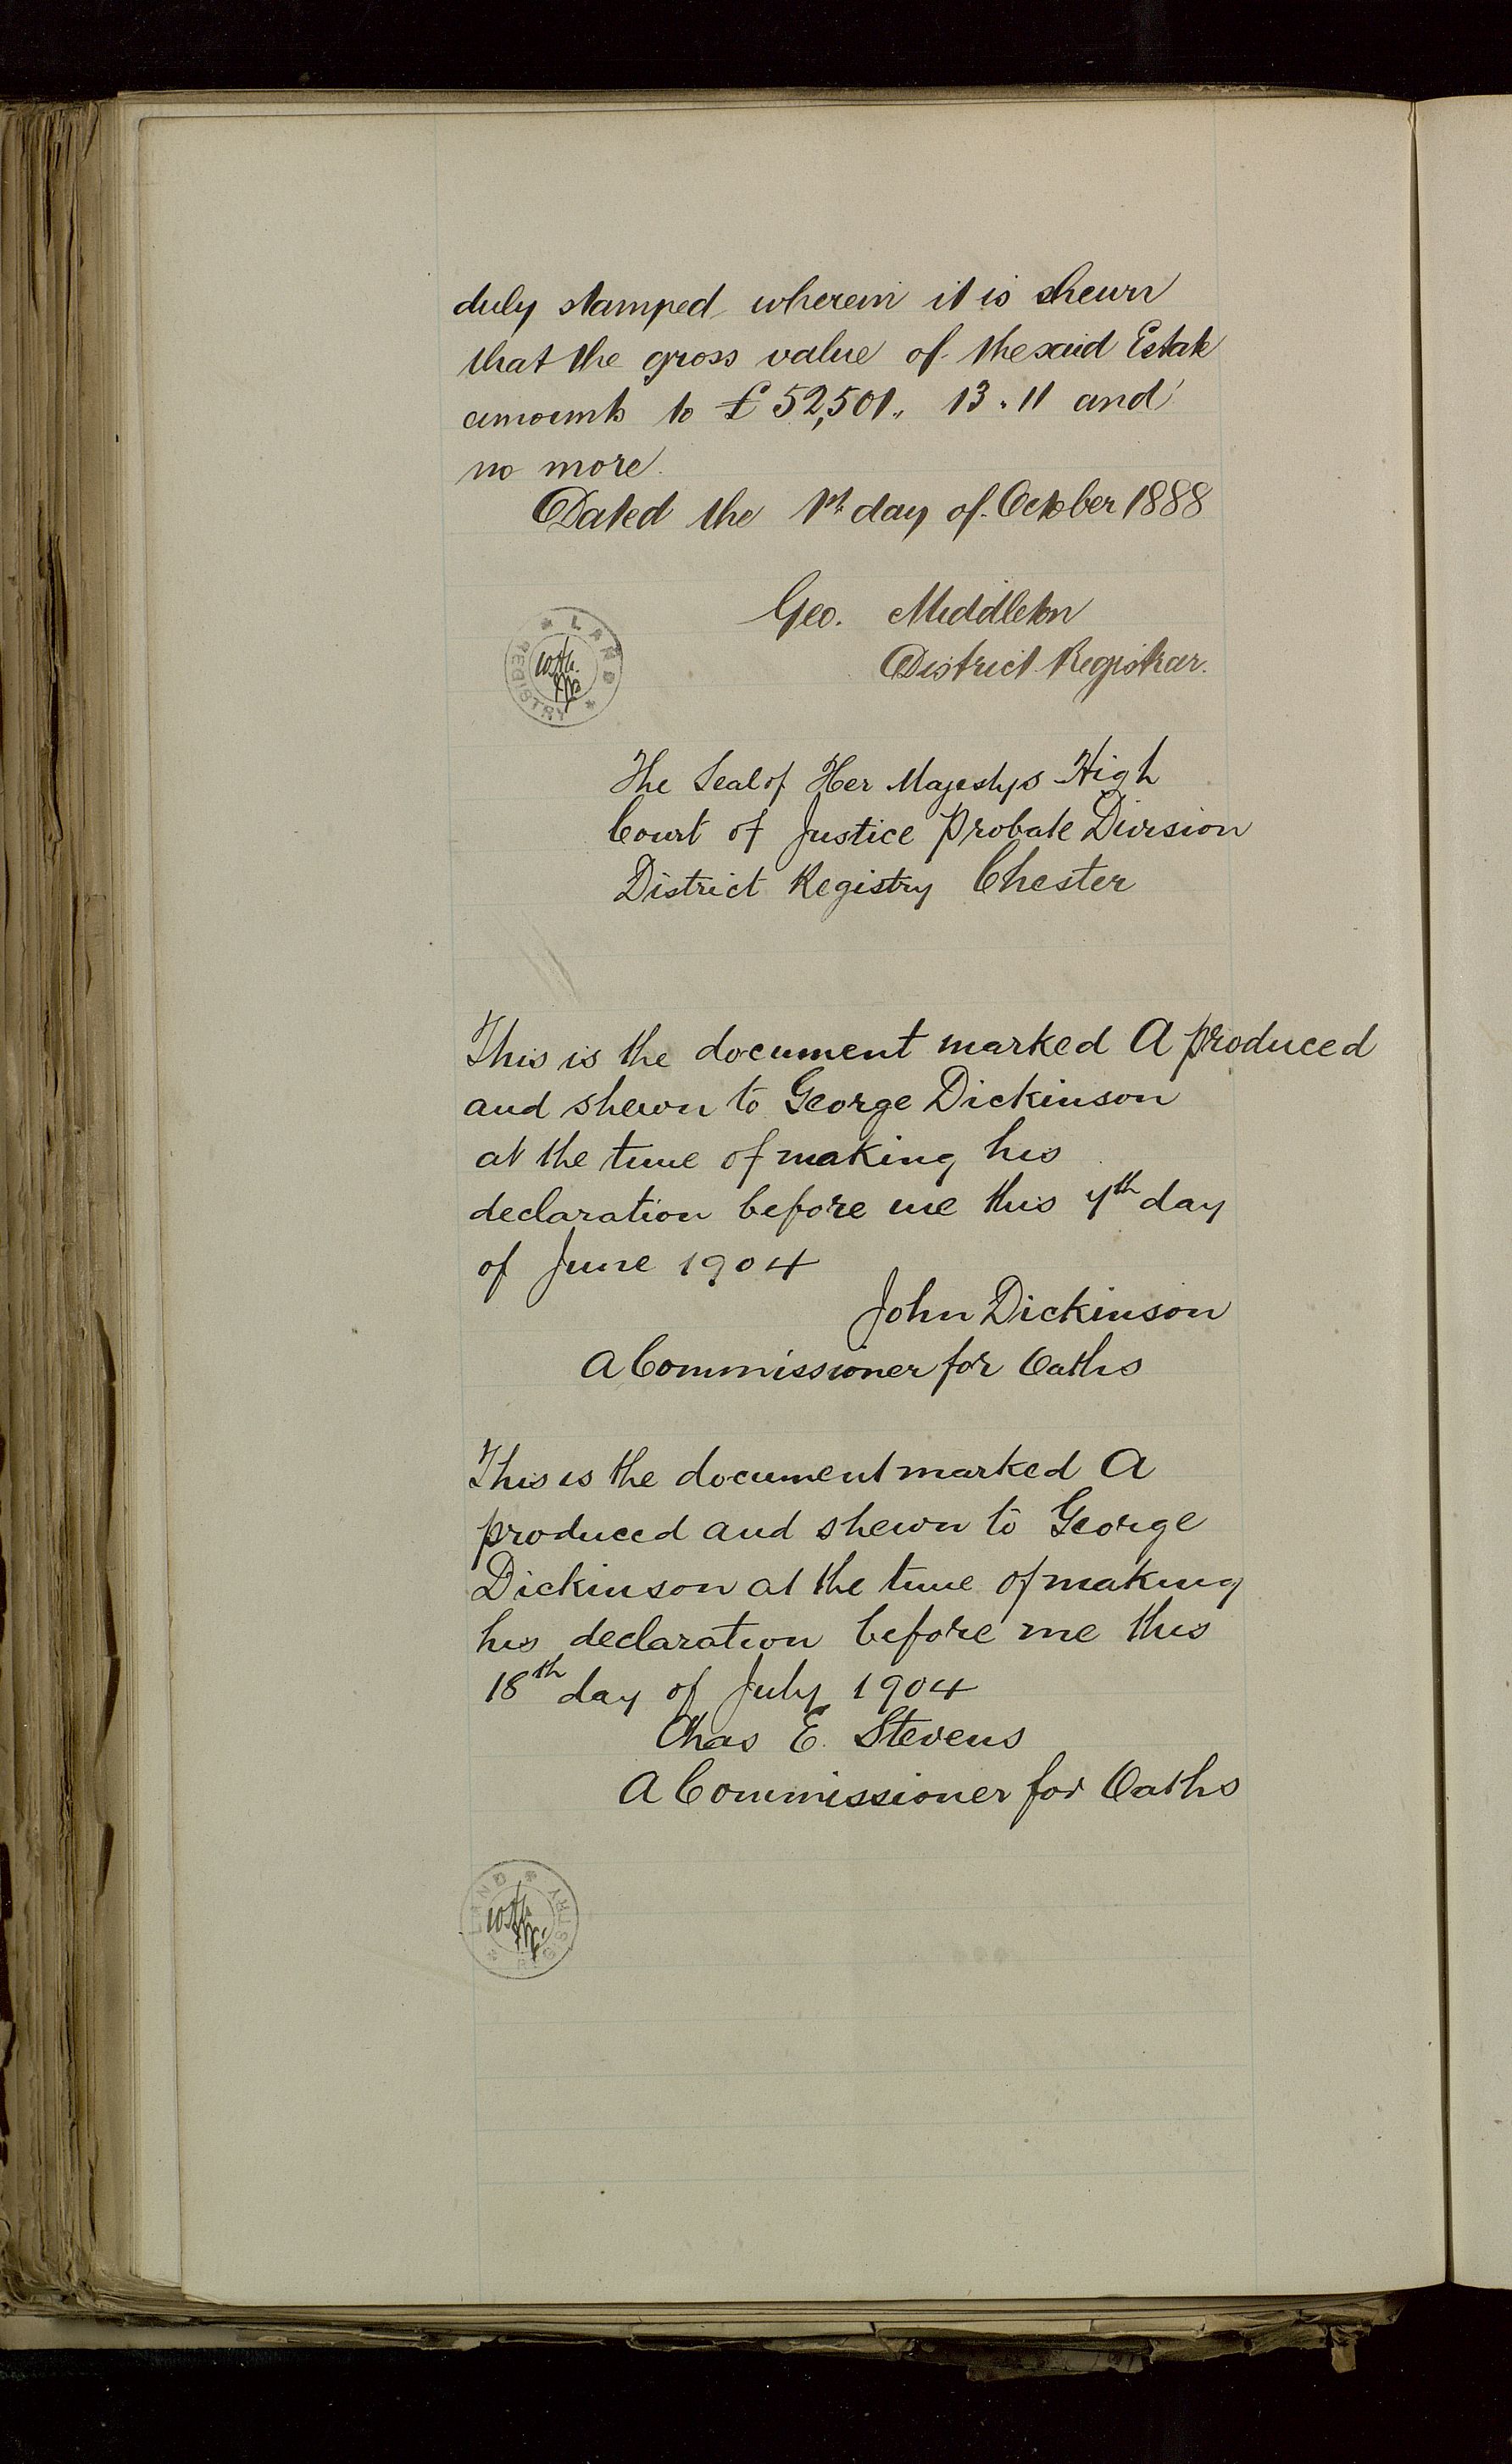 duly stamped wherein it is shewn
that the gross value of the said Estate
amounts to £52,501,, 13.11 and
no more.
Dated the 1st day of October 1888
Geo. Middleton
District Registrar.
LAND REGISTRY
The Seal of Her Majestys High
Court of Justice Probate Division
District Registry Chester
This is the document marked A produced
and shewn to George Dickinson
at the time of making his
declaration before me this day
of June 1904
John Dickinson
A Commissioner for Oaths
This is the document marked A
produced and shewn to George
Dickinson at the time of making
his declaration before me this
18th day of July 1904
Chas E. Stevens
A Commissioner for Oaths
LAND REGISTRY